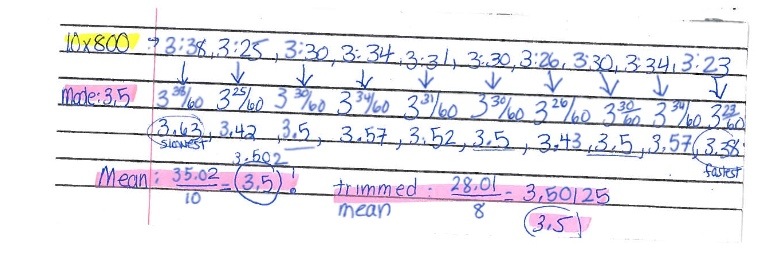 10x800 → 3:38, 3:25, 3:30, 3:34, 3:31, 3:30, 3:26, 3:30, 3:34, 3:23
Mode: 3.5 3 38/60 3 25/60 3 30/60 3 34/60 3 31/60 3 30/60 3 26/60 3 30/60 3 34/60 3 23/60
3.63, 3.42, 3.5, 3.57, 3.52, 3.5, 3.43, 3.5, 3.57, 3.38
slowest fastest
3.502
Mean: 35.02/10 = 3.5! trimmed mean: 28.01/8 = 3.50125
3.5